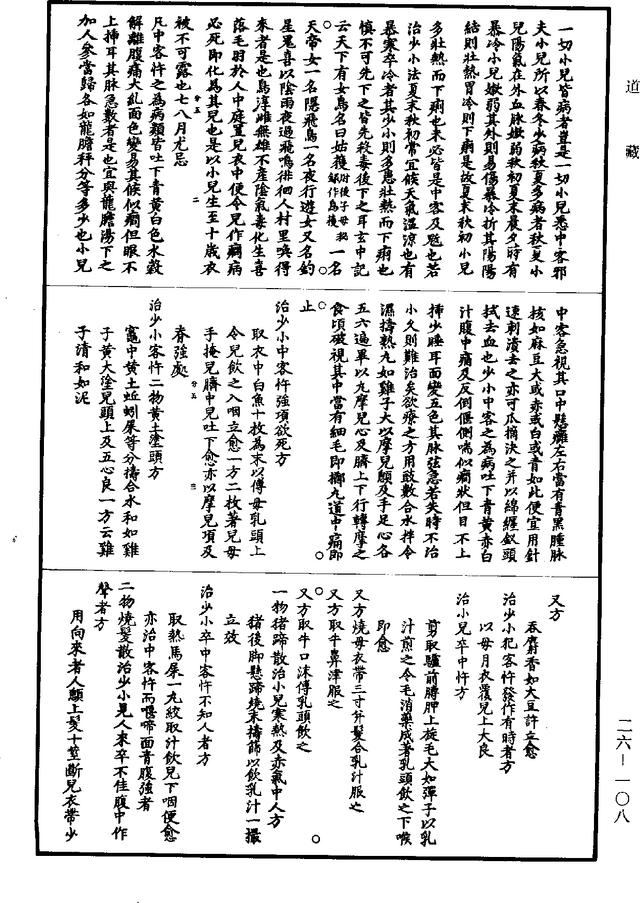 道藏
一切小兒皆病者豈是一切小兒悉中客邪
夫小兒所以春冬少病秋夏多病者秋夏小
兒陽氣在外血脉嫩弱秋初夏末晨夕時有
暴冷小兒嫩弱其外則易傷暴冷折其陽陽
結則壯熱胃冷則下痢是故夏末秋初小兒
多壯熱而下痢也未必皆是中客及魃也若
治少小法夏末秋初常宜候天氣溫涼也有
暴寒卒冷者其少小則多患壯熱而下痢也
慎不可先下之皆先殺毒後下之耳玄中記
云天下有女鳥名曰姑獲肘後子母秘錄作烏獲一名
天帝女一名隱飛鳥一名夜行遊女又名釣
星鬼喜以陰雨夜過飛鳴徘徊人村里喚得
來者是也鳥淳雌無雄不產陰氣毒化生喜
落毛羽於人中庭置兒衣中便令兒作癇病
必死即化為其兒也是以小兒生至十歲衣
被不可露也七八月尤忌
凡中客忤之為病類皆吐下青黃白色水穀
解離腹痛夭亂面色變易其候似癇但眼不
上插耳其脉急數者是也宜與龍膽湯下之
加人參當歸各如龍膽秤分等多少也小兒
中客急視其口中懸癰左右當有青黑腫脉
核如麻豆大或赤或白或青如此便宜用針
速刺潰去之亦可爪摘決之并以綿纏釵頭
拭去血也少小中客之為病吐下青黃赤白
汁腹中痛及反倒偃側喘似癇狀但目不上
插少睡耳面變五色其脉弦急若失時不治
小久則難治矣欲療之方用豉數合水拌令
濕擣熟丸如雞子大以摩兒顖及手足心各
五六遍畢以丸摩兒心及臍上下行轉摩之
食頃破視其中當有細毛即擲丸道中痛即
止
治少小中客忤強項欲死方
取衣中白魚十枚為末以傅母乳頭上
令兒飲之入咽立愈一方二枚著兒母
手掩兒臍中兒吐下愈亦以摩兒項及
脊強處
治少小客忤二物黃土塗頭方
竈中黃土蚯蚓屎等分擣合水和如雞
子黃大塗兒頭上及五心良一方云雞
子清和如泥
又方
吞麝香如大豆許立愈
治少小犯客忤發作有時者方
以母月衣覆兒上大良
治小兒卒中忤方
剪取驢前膊胛上旋毛大如彈子以乳
汁煎之令毛消藥成著乳頭飲之下喉
即愈
又方燒母衣帶三寸并髮合乳汁服之
又方取牛鼻津服之
又方取牛口沫傅乳頭飲之
一物猪蹄散治小兒寒熱及赤氣中人方
猪後脚懸蹄燒末擣篩以飲乳汁一撮
立效
治少小卒中客忤不知人者方
取熱馬屎一丸絞取汁飲兒下咽便愈
亦治中客忤而㖧啼面青腹強者
二物燒髮散治少小見人來卒不佳腹中作
聲者方
用向來者人顖上髮十莖斷兒衣帶少
二六—一〇八